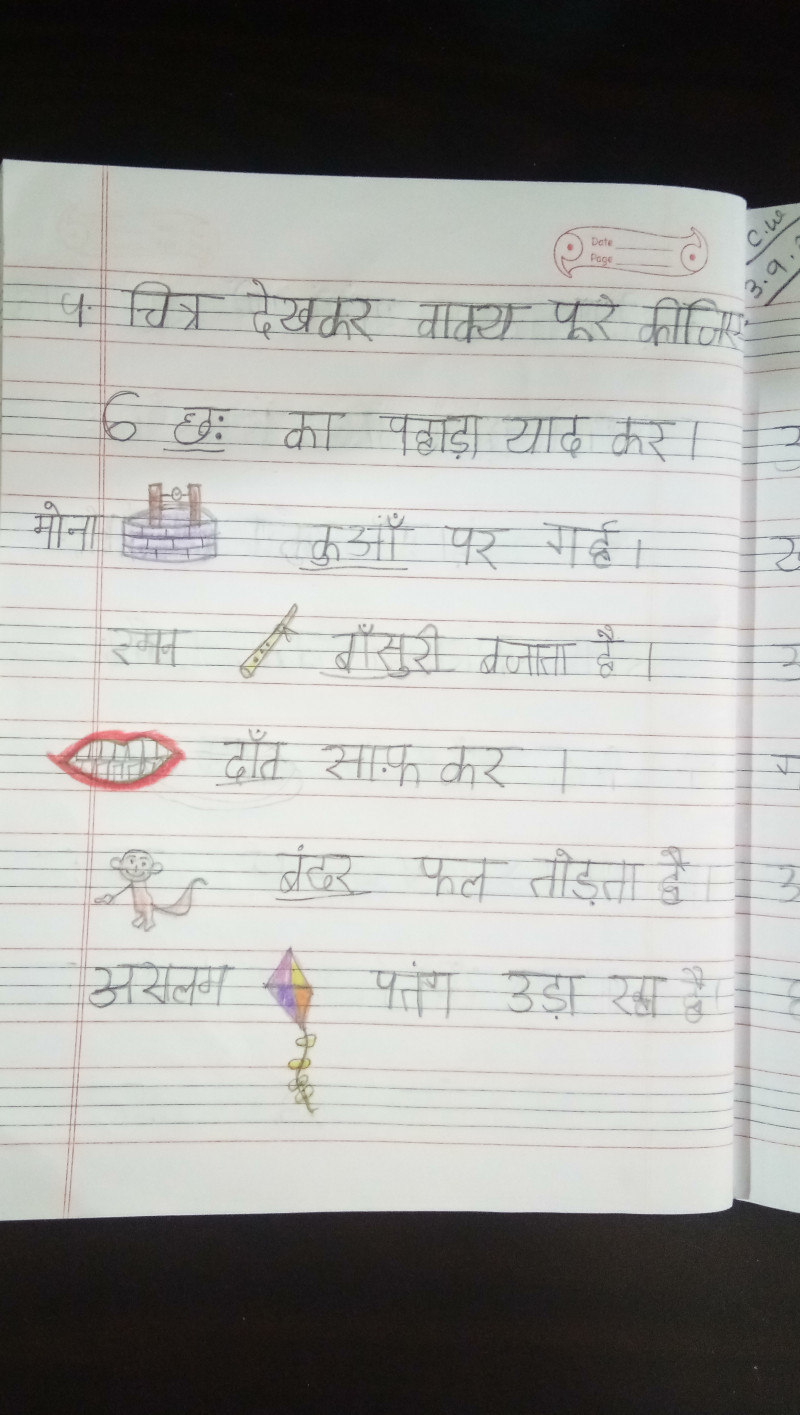 Date
Page
C.W
3.9.
प. चित्र देखकर वाक्य पूरे कीजिए
6 छः का पहाड़ा याद कर।
मोना कुआँ पर गई।
रमन बाँसुरी बजाता है।
दाँत साफ़ कर ।
बंदर फल तोड़ता है।
असलम पतंग उड़ा रहा है।